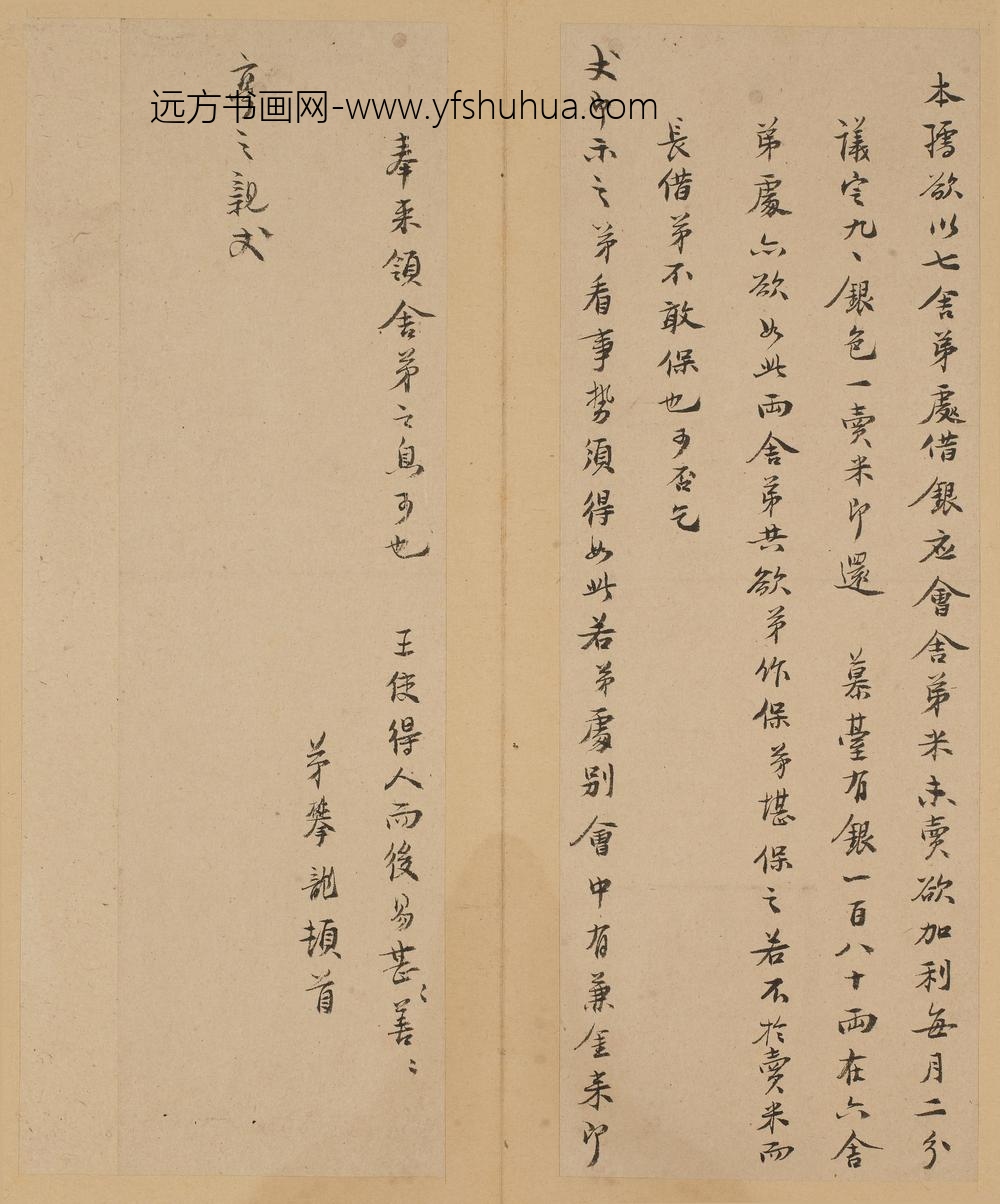 本孺欲以七舍弟處借銀应會舍弟米未賣欲加利每月二分
議定九、銀色一賣米即還 慕臺有銀一百八十兩在六舍
弟處亦欲如此两舍弟共欲弟作保弟堪保之若不於賣米而
長借弟不敢保也可否乞
丈即示之弟看事勢須得如此若弟處别會中有兼金来即
奉来領舍弟之息可也 王使得人而後易甚〻善〻
弟攀龍頓首
之親丈
远方书画网-www.yfshuhua.com